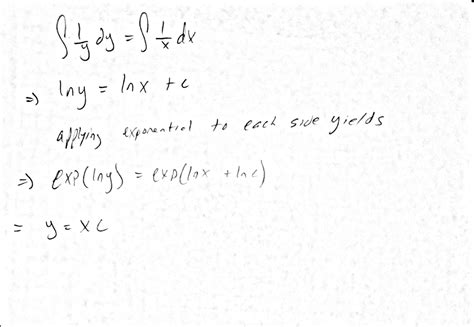 ∫ 1/y dy = ∫ 1/x dx
=> ln y = ln x + c
applying exponential to each side yields
=> exp(ln y) = exp(ln x + ln c)
= y = x c